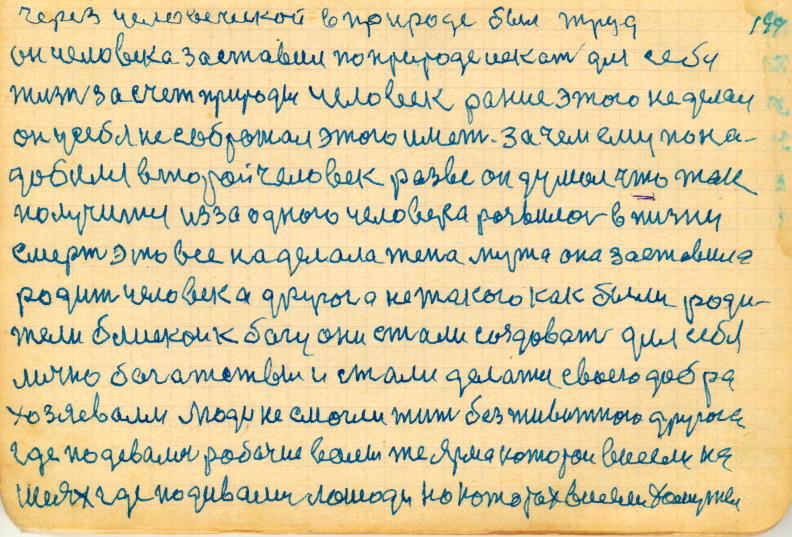 через человеческой в природе был труд 199
он человека заставил по природе искат для себя
жизн за счет природы человек ранне этого не делал
он у себя не соброжал этого имет. зачем ему пона-
добился второй человек разве он думал что так
получится из за одного человека розвилос в жизни
смерт это все наделала жена мужа она заставила
родит человека другога не такого как были роди-
тели блискои к богу они стали создоват для себя
лично богатствы и стали делатся своего добра
хозяевами люди не смогли жит без животного другога
где подевалися робочие волы же ярма которои висели на
шеях где подивалися лошади на которох висели хомуты